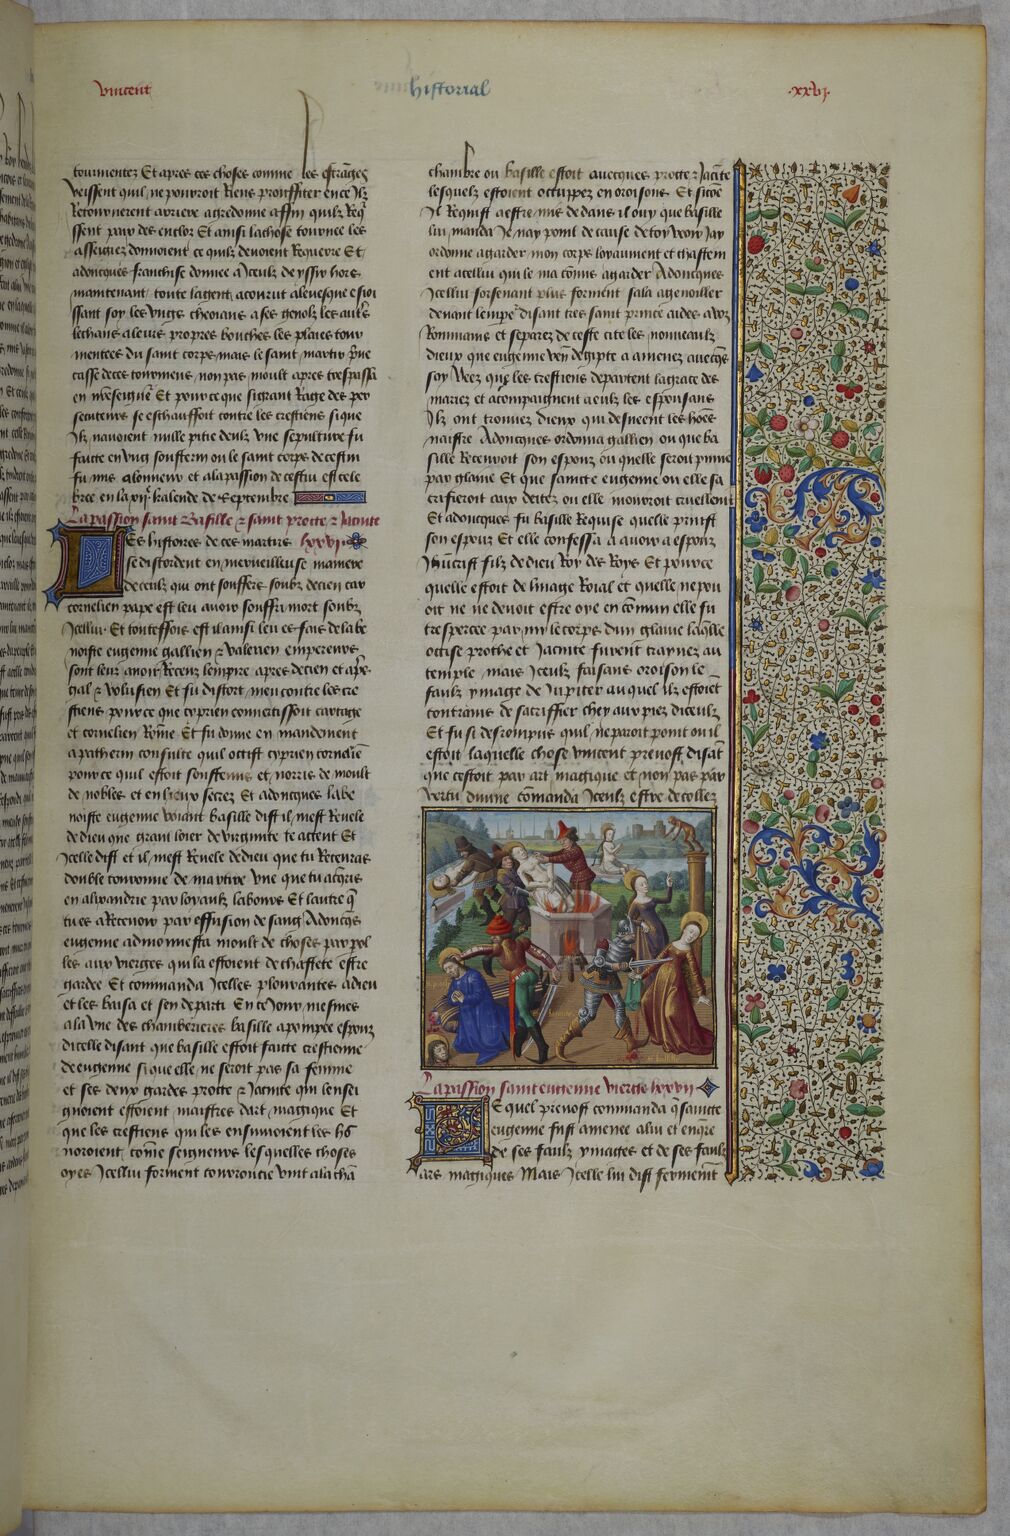 vincent historial .xxvj.
tourmentez Et apres ces choses comme les estrãges
veissent quil ne pourroit Riens prouffiter en ce Ilz
Retournerent arriere a gredonne affin quilz Reqͥ
ssent paix des enclos Et ainsi la chose tournee les
assiegiez donnoient ce quilz devoient Requerre Et
adoncques franchise donnee a Iceulx de yssir hors
maintenant toute la gent acourut a levesque esioi
ssant soy les vngs cheoians a ses genolz les autˢ
lechans a leurs propres bouches les plaies tour
mentees du saint corps mais le saint martir
casse de ces tourmens non pas moult apres trespassa
Et pource que si grant Rage des per
secuteurs se eschauffoit contre les crestiens si que
Ilz navoient nulle pitie deulx Vne sepulture fu
faicte en vng sousterrin ou le saint corps de cestui
fu mis a lonneur et a la passion de cestui est cele
bree en la kalende de Septembre
La passion saint Basille & saint procte & Jacincte
Les histoires de ces martirs lxxvi
se distordent en merveilleuse maniere
de ceulx qui ont souffers soubz decien car
cornelien pape est leu avoir souffri mort soubz
Icellui Et touteffois est il ainsi leu es fais de labe
noiste eugenne gallien & valerien empereurs
sont leur avoir Receu lempire apres decien et apˢ
gal & volusien Et fu distort meu contre les cre
stiens pour ce que cyprien convertissoit cartage
et cornelien Rõme Et fu donne en mandement
a pathern consulte quil occist cyprien cornaliẽ
pour ce quil estoit soustenus et norris de moult
de nobles et en lieux secrez Et adoncques labe
noiste eugenne voiant basille dist il mest Revele
de dieu que grant loier de virginite te actent Et
Icelle dist et il mest Revele de dieu que tu Recevras
double couronne de martire vne que tu acqˢis
en alixandre par loyaulx labours Et lautre q̃
tu es a Recevoir par effusion de sang Adoncq̃s
eugenne admonnesta moult de choses par pol
les aux vierges qui la estoient de chastete estre
garde Et commanda Icelles plourantes a dieu
et les baisa et sen departi En ce Jour mesmes
a la vne des chamberieres basille a pompee espoux
dicelle disant que basille estoit faicte crestienne
de eugenne si que elle ne seroit pas sa femme
et ses deux gardes procte & Jacincte qui lensei
gnoient estoient maistres dart magique Et
que les crestiens qui les ensuivoient les hõ
noroient cõme seigneurs lesquelles choses
oyes Icellui forment courroucie vint a la chã
chambre ou basille estoit avecques procte & Jacincte
lesquelz estoient occuppez en oroisons Et sicõe
Il Requist a estre mis dedans il ouy que basille
lui manda Je nay point de cause de toy veoir Jay
ordonne a garder mon corps loyaument et chastem
ent a cellui qui le ma cõmis a garder Adoncques
Icellui forsenant plus forment sala agenoiller
devant lempeˢ disant tres saint prince aides a voz
Rommains et separez de ceste cite les nouveaulx
dieux que eugenne veñ degipte a amenez avecq̃s
soy Veez que les crestiens departent la grace des
mariez et acompaignent a eulx les espousans
Ilz ont trouvez dieux qui desneent les hões
naistre Adoncques ordonna gallien ou que ba
sille Recevroit son espoux ou quelle seroit pugnie
par glaive Et que saincte eugenne ou elle sa
crifieroit aux deitez ou elle mourroit cruellemt
Et adoncques fu basille Requise quelle prinst
son espoux Et elle confessa a avoir a espoux
Jhũcrist filz de dieu Roy des Roys Et pour ce
quelle estoit de linage Roial et quelle ne pou
oit ne ne devoit estre oye en cõmun elle fu
trespercee par my le corps dun glaive laq̃lle
occise prothe et Jacincte furent traynez au
temple mais Iceulx faisans oroison le
faulx ymage de Jupiter auquel ilz estoiẽt
contrains de sacriffier chey aux piez diceulx
Et fu si desrompus quil ne paroit point ou il
estoit laquelle chose vincent prevost disãt
que cestoit par art magique et non pas par
vertu divine cõmanda Iceulx estre decollez
La passion saint eugenne vierge lxxvii
Lequel prevost commanda q̃ saincte
eugenne fust amenee a lui et enqre
de ses faulx ymages et de ses faulx
ars magiques Mais Icelle lui dist fermemẽt